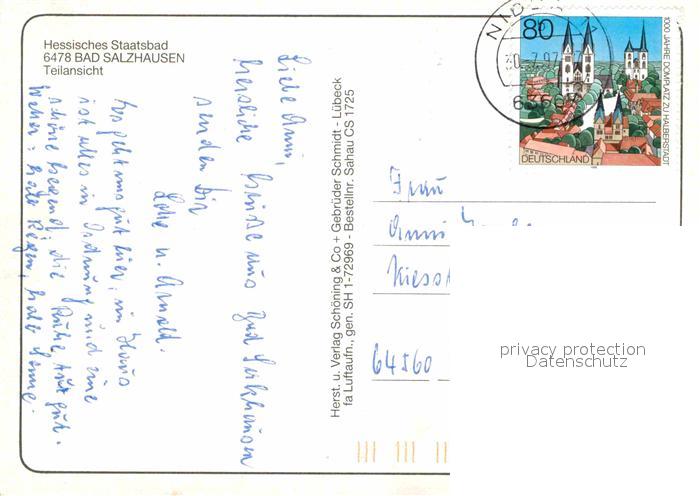 Hessisches Staatsbad
6478 BAD SALZHAUSEN
Teilansicht
Liebe Anni,
herzliche Grüße aus Bad Salzhausen
senden Dir
Lotte u. Arnold.
Es geht uns gut hier, im Haus
ist alles in Ordnung und eine
schöne Gegend, die Ruhe tut gut.
Wetter: halb Regen, halb Sonne.
Herst. u. Verlag Schöning & Co + Gebrüder Schmidt - Lübeck
fa Luftaufn., gen. SH 1-72969 - Bestellnr. Sahau CS 1725
80
1000 JAHRE DOMPLATZ ZU HALBERSTADT
DEUTSCHLAND
NIDD
Frau
Anni
64560
privacy protection
Datenschutz